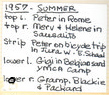 1957 - SUMMER
top l. Peter in Rome
top r. Merv & Helene in Sausalito
Strip Peter on bicycle trip in Jura w. Y. School
lower l. Gigi in Belgian send YMCA Camp
lower r. Gramp, Blackie & Packard